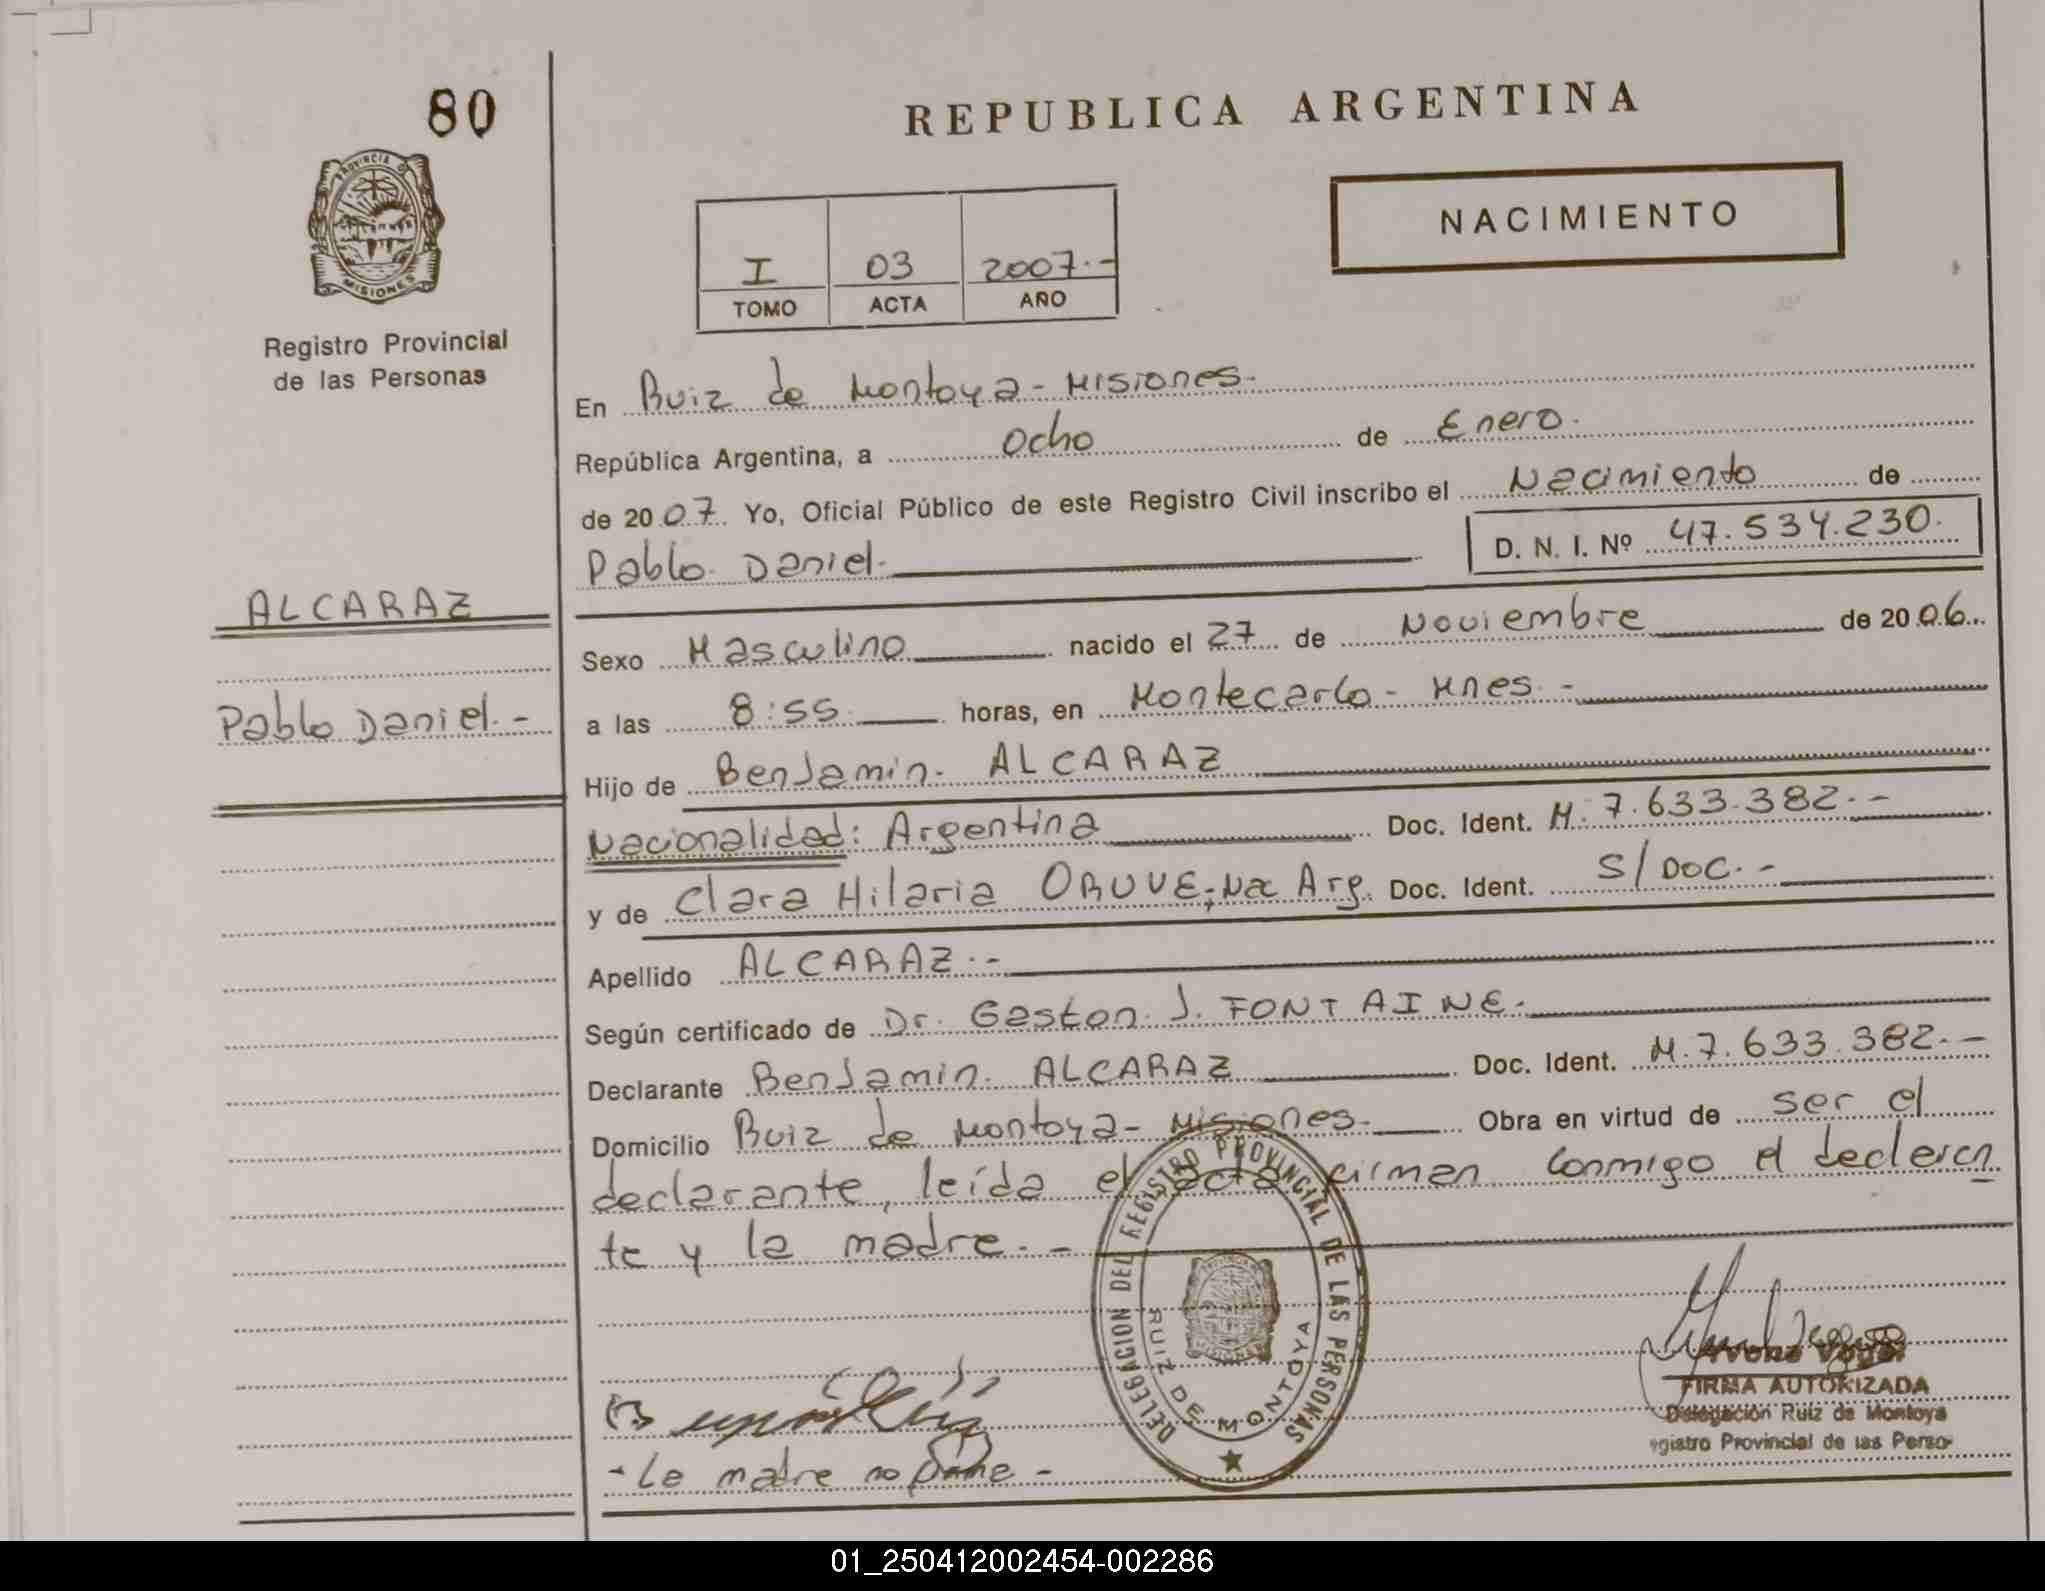 80
REPUBLICA ARGENTINA
PROVINCIA D
MISIONES
NACIMIENTO
I 03 2007.-
TOMO ACTA AÑO
Registro Provincial
de las Personas
En Ruiz de Montoya - Misiones.
República Argentina, a Ocho de Enero.
de 2007. Yo, Oficial Público de este Registro Civil inscribo el Nacimiento de
Pablo Daniel. D. N. I. Nº 47.534.230.
ALCARAZ
Pablo Daniel.-
Sexo Masculino nacido el 27 de Noviembre de 2006
a las 8:55 horas, en Montecarlo - Mnes.-
Hijo de Benjamin. ALCARAZ
Nacionalidad: Argentina Doc. Ident. M. 7.633.382.-
y de Clara Hilaria ORUVE, Nac Arg. Doc. Ident. S/DOC.-
Apellido ALCARAZ.-
Según certificado de Dr. Gaston. J. FONTAINE.
Declarante Benjamin. ALCARAZ Doc. Ident. M.7.633.382.-
Domicilio Ruiz de Montoya - Misiones. Obra en virtud de ser el
declarante, leída el acta firman conmigo el declaran
te y la madre.-
DELEGACION DEL REGISTRO PROVINCIAL DE LAS PERSONAS
RUIZ DE MONTOYA
MISIONES
FIRMA AUTORIZADA
Delegación Ruiz de Montoya
egistro Provincial de las Perso
- La madre no firme -
01_250412002454-002286